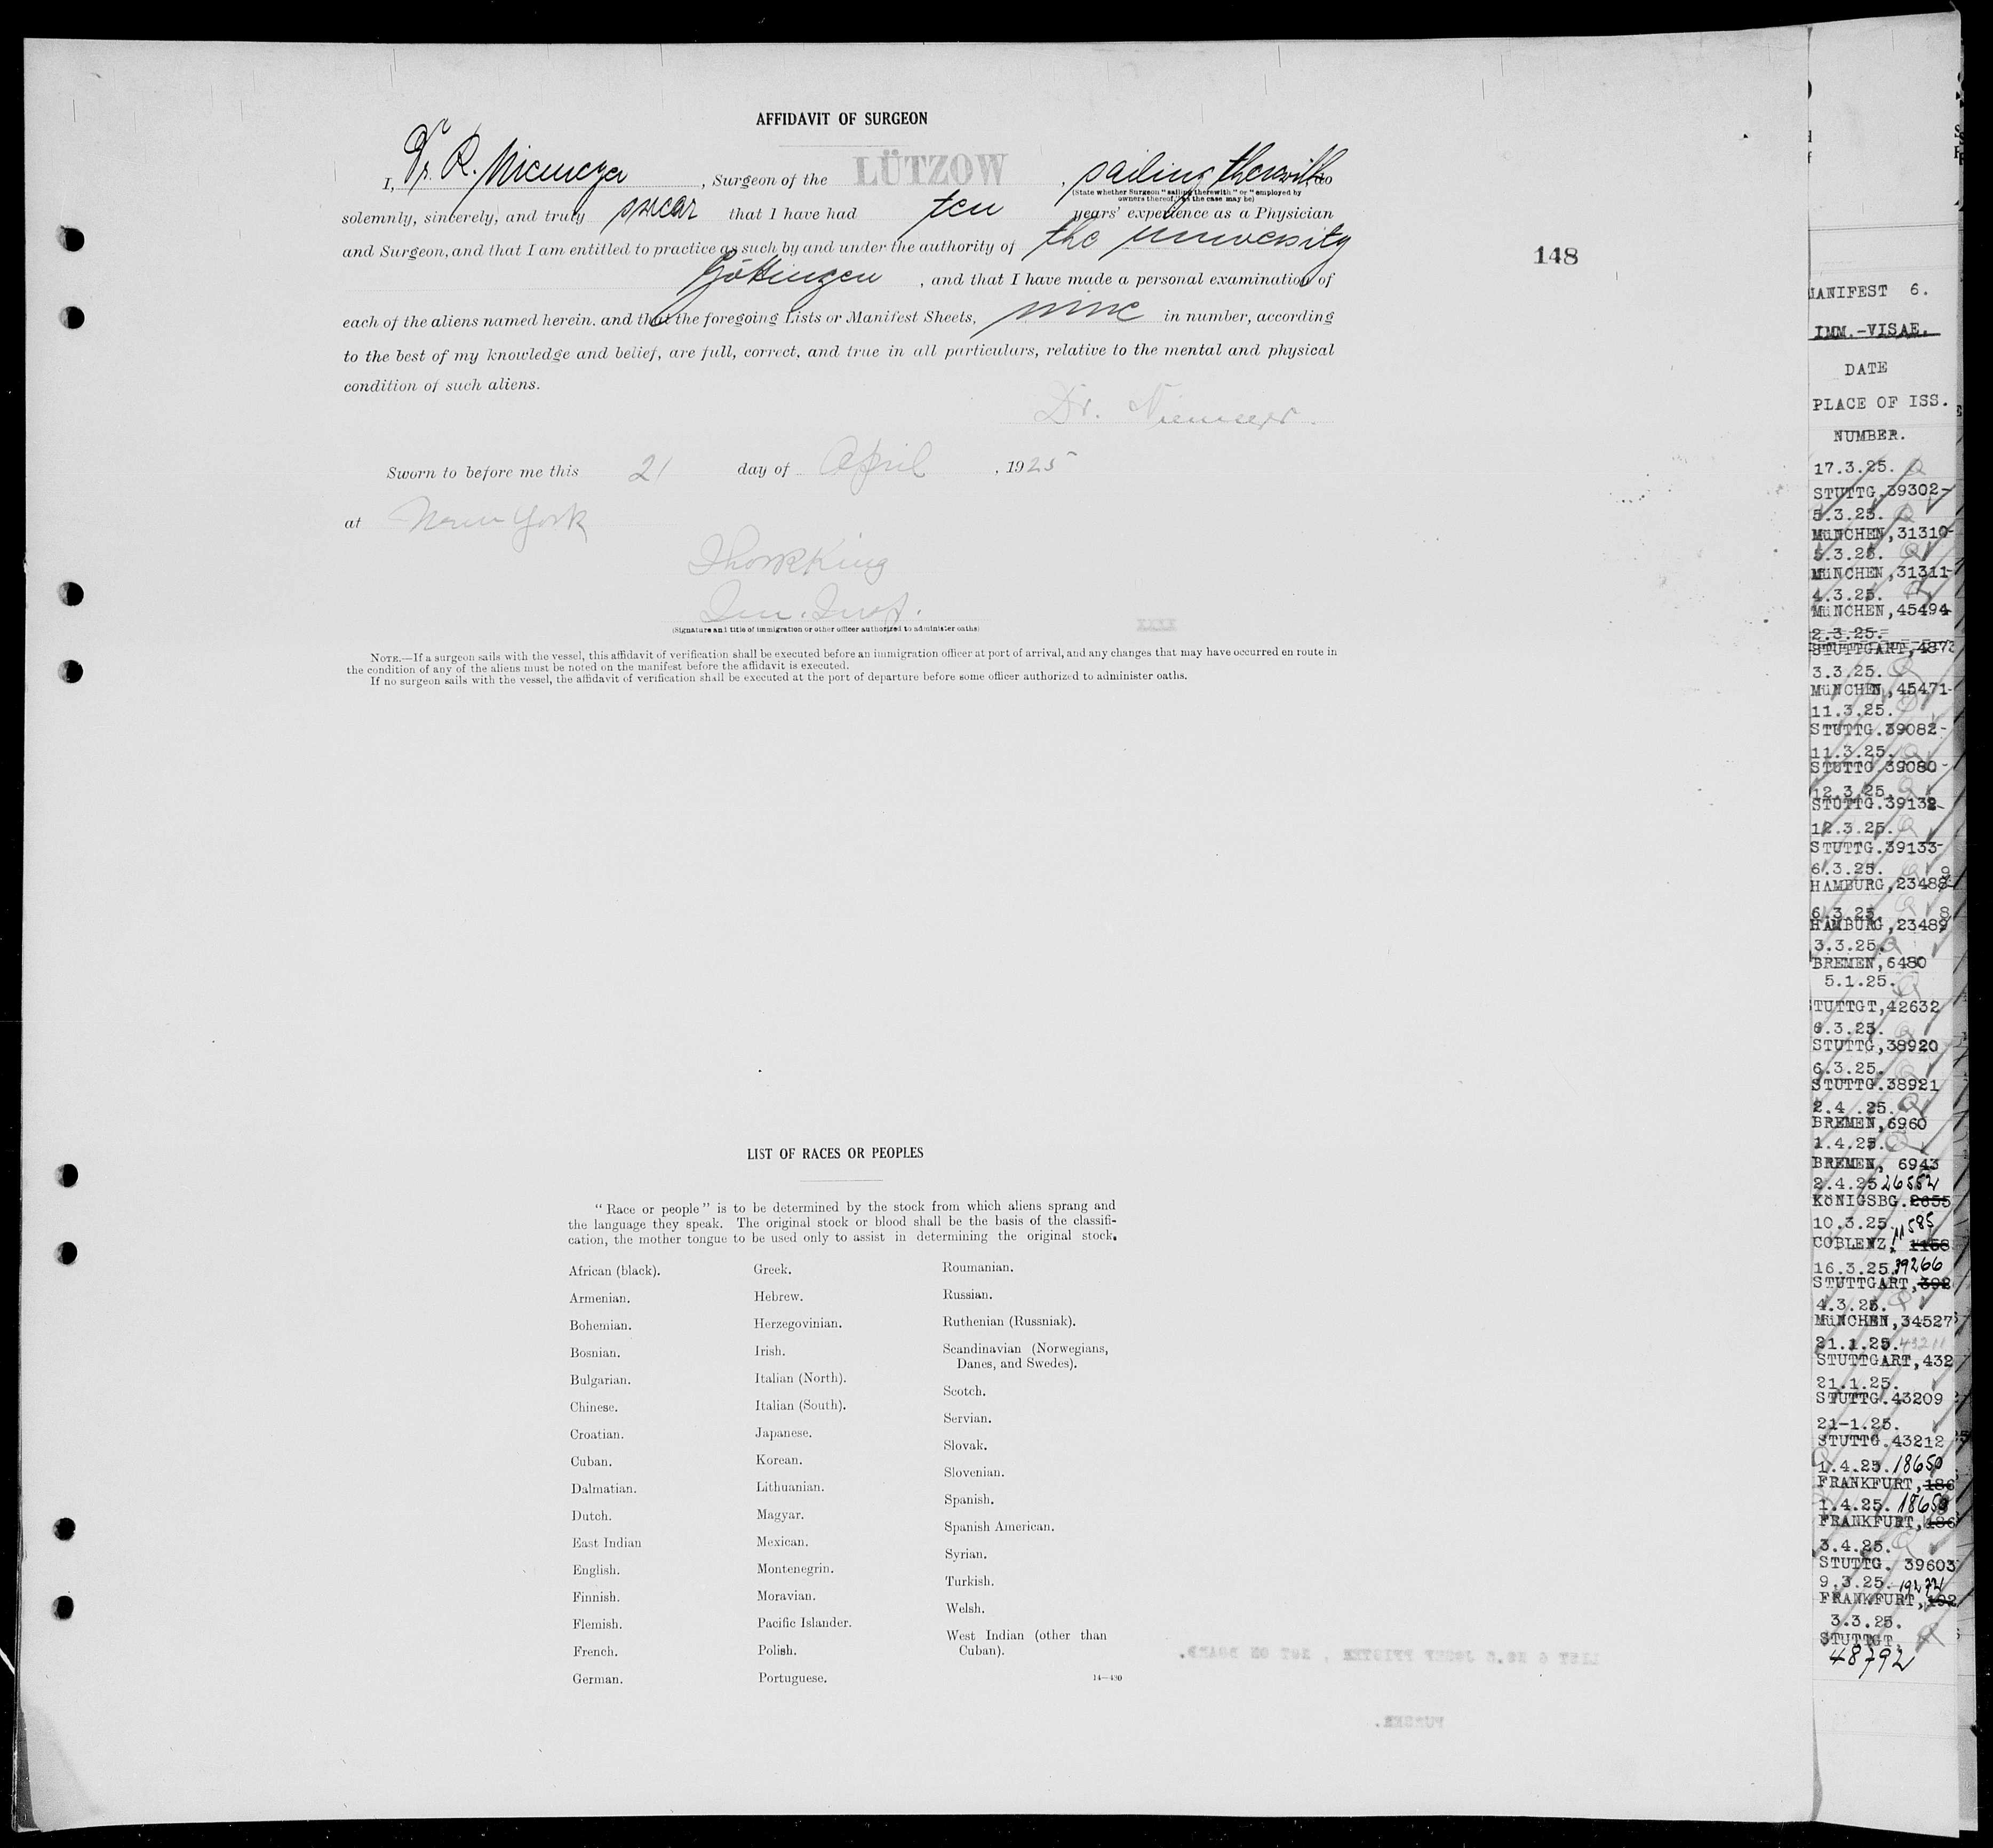 AFFIDAVIT OF SURGEON
I, Dr. R. Niemeyer, Surgeon of the LÜTZOW, sailing therewith, do
(State whether Surgeon "sailing therewith" or "employed by
owners thereof," as the case may be)
solemnly, sincerely, and truly swear that I have had ten years' experience as a Physician
and Surgeon, and that I am entitled to practice as such by and under the authority of the university
Göttingen, and that I have made a personal examination of
148
each of the aliens named herein. and that the foregoing Lists or Manifest Sheets, nine in number, according
to the best of my knowledge and belief, are full, correct, and true in all particulars, relative to the mental and physical
condition of such aliens.
Dr. Niemeyer.
Sworn to before me this 21 day of April, 1925
at New York
King
Imm. Insp.
(Signature and title of immigration or other officer authorized to administer oaths)
NOTE.—If a surgeon sails with the vessel, this affidavit of verification shall be executed before an immigration officer at port of arrival, and any changes that may have occurred en route in
the condition of any of the aliens must be noted on the manifest before the affidavit is executed.
If no surgeon sails with the vessel, the affidavit of verification shall be executed at the port of departure before some officer authorized to administer oaths.
LIST OF RACES OR PEOPLES
"Race or people" is to be determined by the stock from which aliens sprang and
the language they speak. The original stock or blood shall be the basis of the classifi-
cation, the mother tongue to be used only to assist in determining the original stock.
African (black).
Armenian.
Bohemian.
Bosnian.
Bulgarian.
Chinese.
Croatian.
Cuban.
Dalmatian.
Dutch.
East Indian
English.
Finnish.
Flemish.
French.
German.
Greek.
Hebrew.
Herzegovinian.
Irish.
Italian (North).
Italian (South).
Japanese.
Korean.
Lithuanian.
Magyar.
Mexican.
Montenegrin.
Moravian.
Pacific Islander.
Polish.
Portuguese.
Roumanian.
Russian.
Ruthenian (Russniak).
Scandinavian (Norwegians,
Danes, and Swedes).
Scotch.
Servian.
Slovak.
Slovenian.
Spanish.
Spanish American.
Syrian.
Turkish.
Welsh.
West Indian (other than
Cuban).
14—430
LIST 6 NO.5 JOSEF PFISTER, NOT ON BOARD.
PURSER.
MANIFEST 6.
IMM.-VISAE.
DATE
PLACE OF ISS.
NUMBER.
17.3.25.
STUTTG.39302-
5.3.25.
MüNCHEN,31310-
5.3.25.
MüNCHEN,31311-
4.3.25.
MüNCHEN,45494
2.3.25.
STUTTGART,487
3.3.25.
MüNCHEN,45471-
11.3.25.
STUTTG.39082-
11.3.25.
STUTTG.39080-
12.3.25.
STUTTG.39132-
12.3.25.
STUTTG.39133-
6.3.25. 9
HAMBURG,23488-
6.3.25. 8
HAMBURG,23489
3.3.25.
BREMEN,6480
5.1.25.
STUTTGT,42632
6.3.25.
STUTTG,38920
6.3.25.
STUTTG.38921
2.4 .25.
BREMEN,6960
1.4.25.
BREMEN, 6943
2.4.25 26552
KöNIGSBG.2655
10.3.25. 11585
COBLENZ, 1158
16.3.25. 39266
STUTTGART,392
4.3.25.
MüNCHEN,34527
21.1.25. 43211
STUTTGART,432
21.1.25.
STUTTG.43209
21-1.25.
STUTTG.43212
1.4.25. 18650
FRANKFURT,186
1.4.25. 18659
FRANKFURT,186
3.4.25.
STUTTG. 39603
9.3.25. 19272
FRANKFURT,192
3.3.25.
STUTTGT,
48792